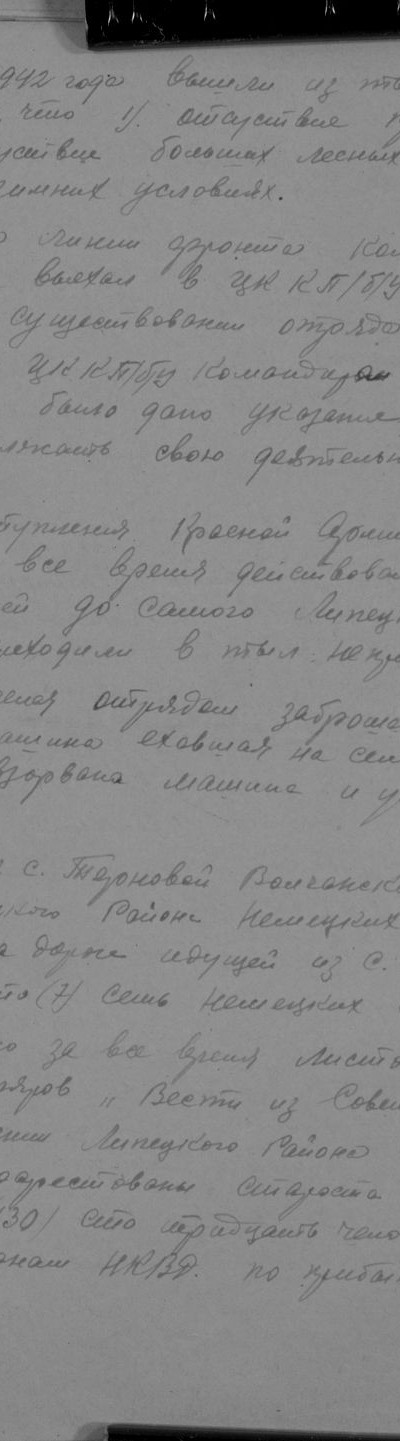 942 года вышли из ты
что 1/. отсутствие
утствие больших лесных
зимних условиях.
линии фронта Ком
выехал в ЦК КП/б/У
существовании отряда
ЦК КП/б/У Командиром
было дано указания
лжать свою деятельн
тупления Красной Арми
все время действовал
ей до самого Липец
еходили в тыл непр
отрядом заброше
ашина ехавшая на сем
взорвана машина и у
с. Терновой Волчанск
кого Района Немецких
а дороге идущей из с.
то (7) семь немецких
о за все время листо
ляров „ Вести из Сове
ении Липецкого Района
арестованы староста
130) сто тридцать чело
онам НКВД. по прибы